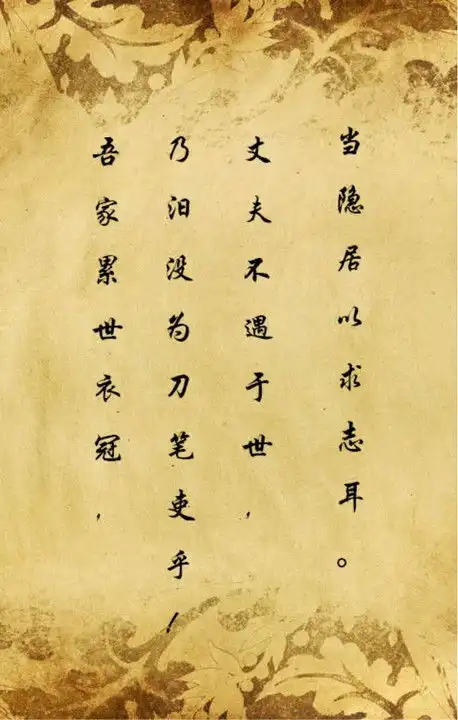 吾家累世衣冠，
乃汩没为刀笔吏乎！
丈夫不遇于世，
当隐居以求志耳。